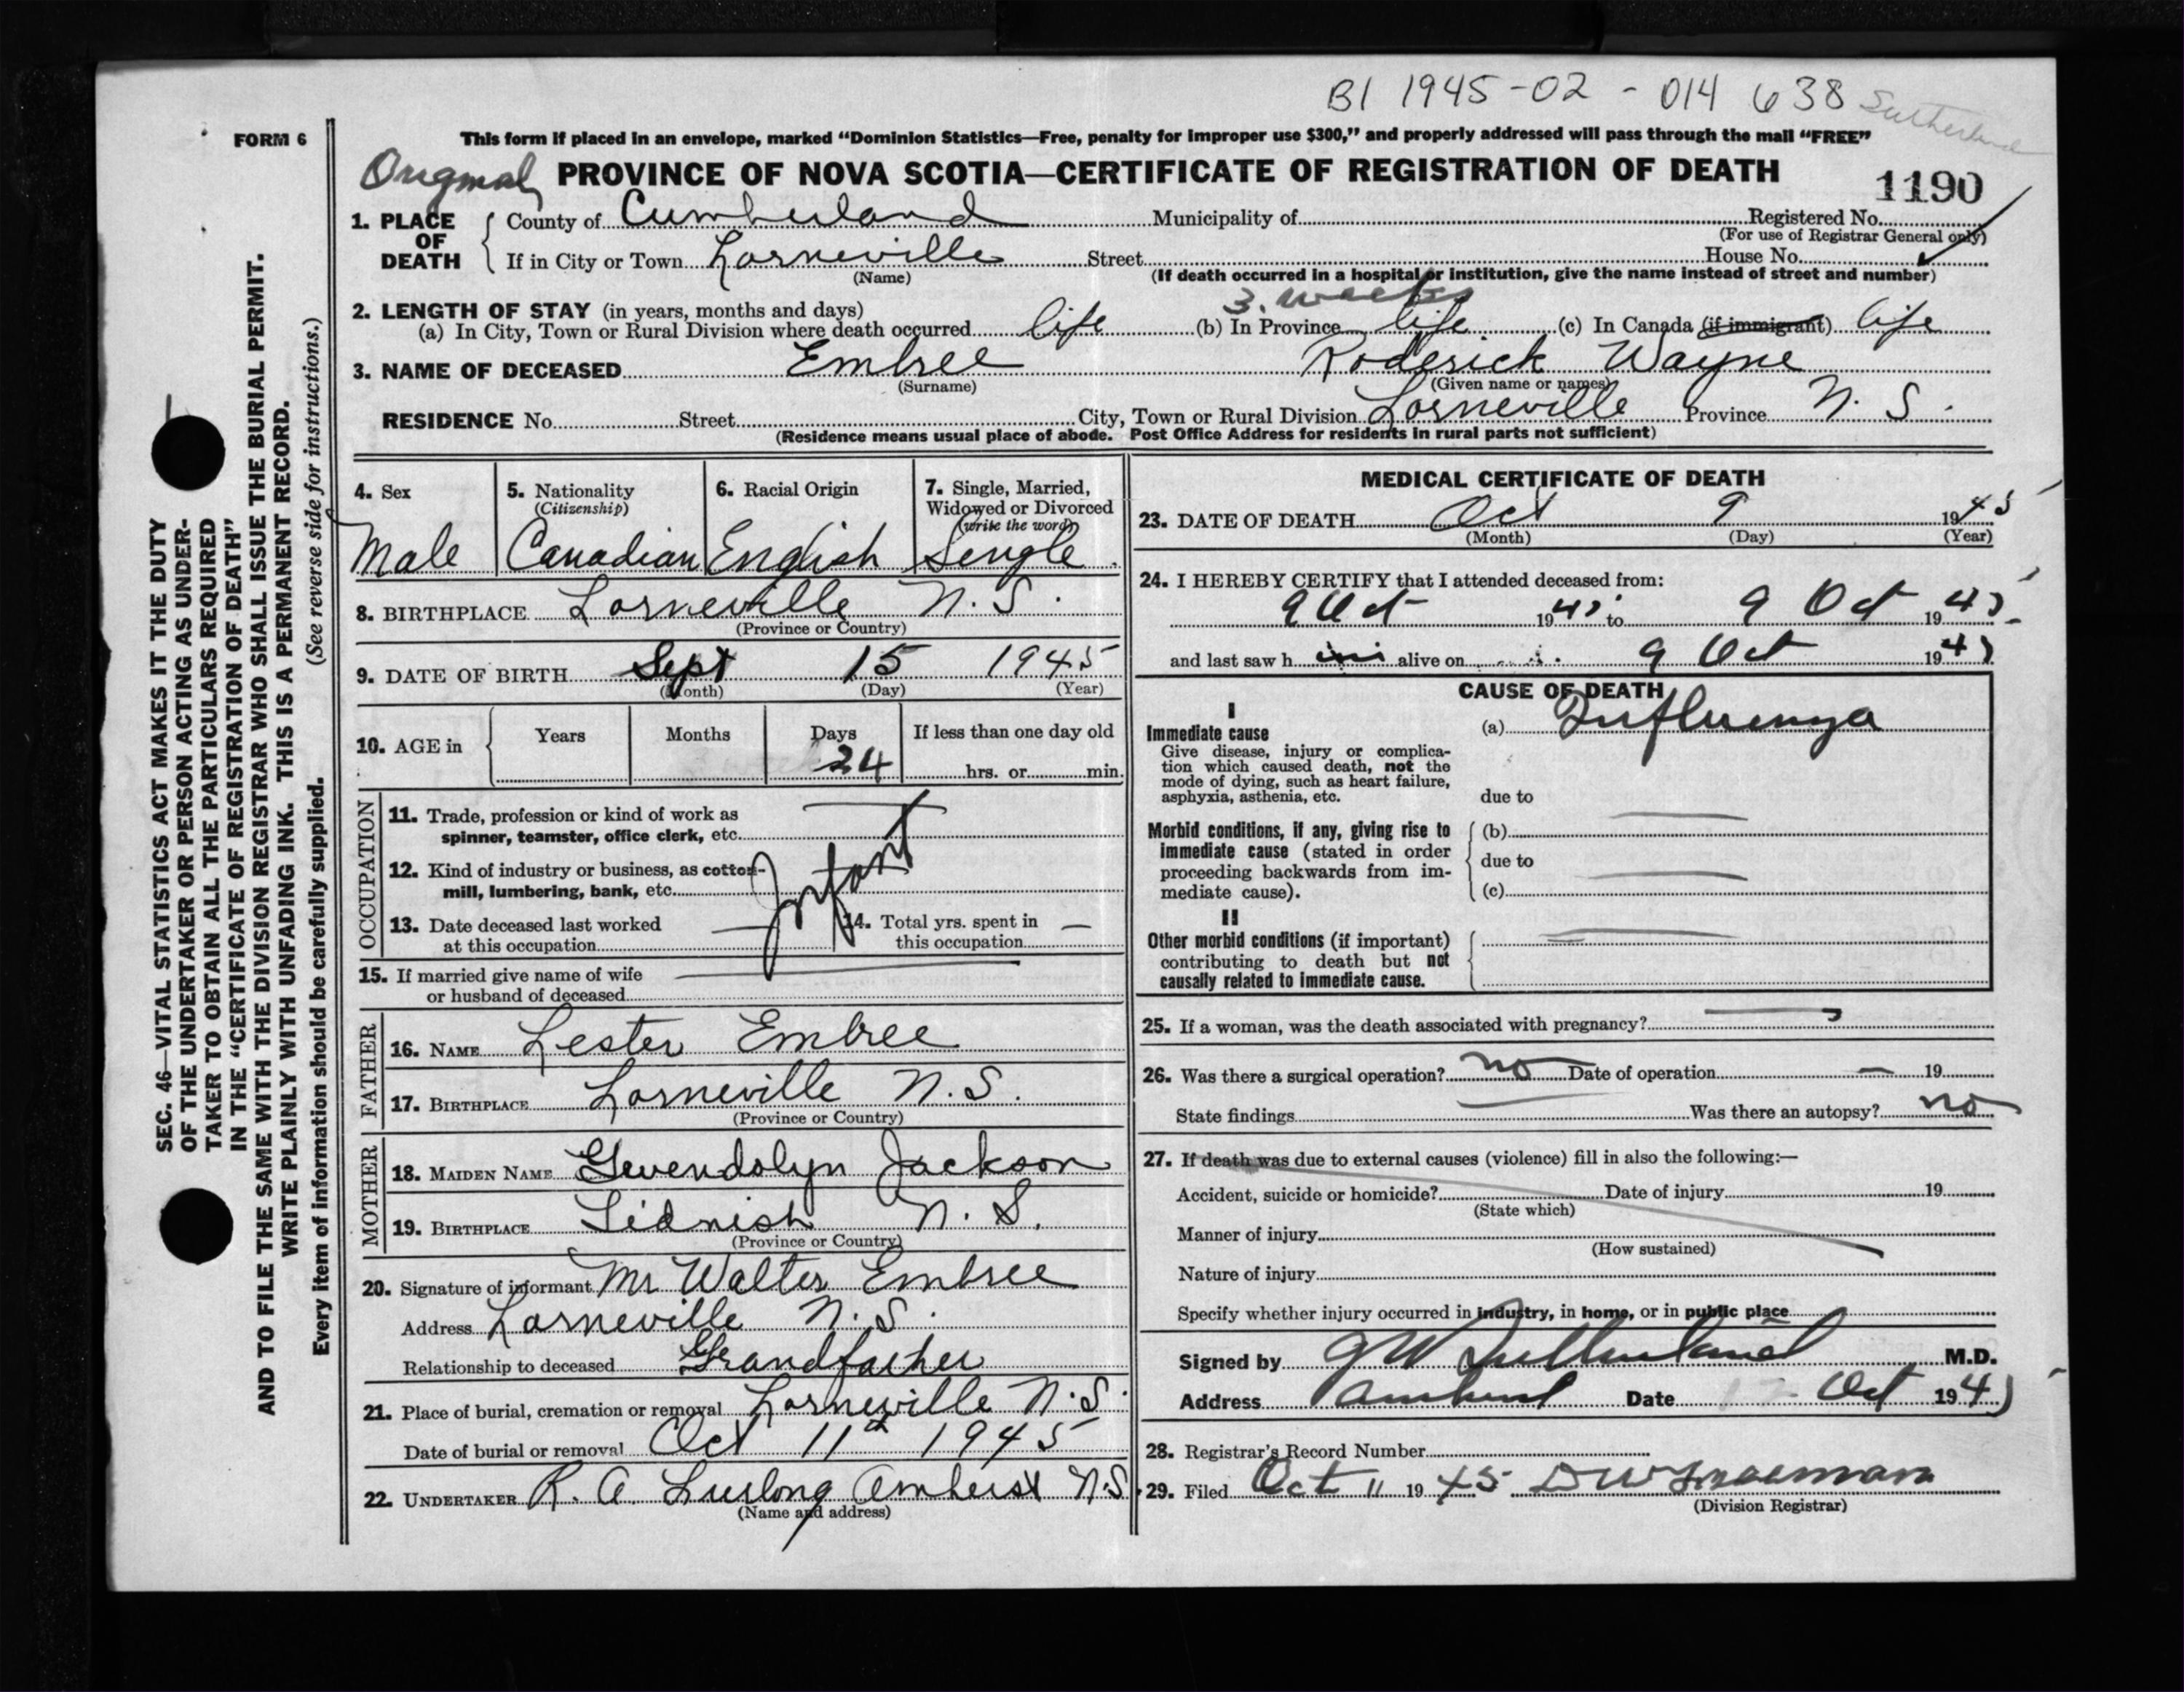 B1 1945-02-014638 Sutherland
FORM 6
This form if placed in an envelope, marked “Dominion Statistics—Free, penalty for improper use $300,” and properly addressed will pass through the mail “FREE”
Original PROVINCE OF NOVA SCOTIA—CERTIFICATE OF REGISTRATION OF DEATH 1190
1. PLACE OF DEATH County of Cumberland Municipality of Registered No.
(For use of Registrar General only)
If in City or Town Lorneville Street House No.
(Name) (If death occurred in a hospital or institution, give the name instead of street and number)
2. LENGTH OF STAY (in years, months and days) 3. weeks
(a) In City, Town or Rural Division where death occurred life (b) In Province life (c) In Canada (if immigrant) life
3. NAME OF DECEASED Embree Roderick Wayne
(Surname) (Given name or names)
RESIDENCE No. Street City, Town or Rural Division Lorneville Province N. S.
(Residence means usual place of abode. Post Office Address for residents in rural parts not sufficient)
4. Sex 5. Nationality 6. Racial Origin 7. Single, Married,
(Citizenship) Widowed or Divorced
(write the word)
Male Canadian English Single
8. BIRTHPLACE Lorneville N. S.
(Province or Country)
9. DATE OF BIRTH Sept 15 1945
(Month) (Day) (Year)
10. AGE in Years Months Days If less than one day old
24 hrs. or min.
OCCUPATION
11. Trade, profession or kind of work as
spinner, teamster, office clerk, etc.
12. Kind of industry or business, as cotton-
mill, lumbering, bank, etc.
Infant
13. Date deceased last worked
at this occupation
14. Total yrs. spent in
this occupation —
15. If married give name of wife
or husband of deceased
FATHER
16. NAME Lester Embree
17. BIRTHPLACE Lorneville N. S.
(Province or Country)
MOTHER
18. MAIDEN NAME Gwendolyn Jackson
19. BIRTHPLACE Tidnish N. S.
(Province or Country)
20. Signature of informant Mr Walter Embree
Address Lorneville N. S.
Relationship to deceased Grandfather
21. Place of burial, cremation or removal Lorneville N. S.
Date of burial or removal Oct 11th 1945
22. UNDERTAKER R. A. Furlong Amherst N.S.
(Name and address)
MEDICAL CERTIFICATE OF DEATH
23. DATE OF DEATH Oct 9 1945
(Month) (Day) (Year)
24. I HEREBY CERTIFY that I attended deceased from:
9 Oct 1945 to 9 Oct 1945
and last saw him alive on 9 Oct 1945
CAUSE OF DEATH
I
Immediate cause (a) Influenza
Give disease, injury or complica-
tion which caused death, not the
mode of dying, such as heart failure,
asphyxia, asthenia, etc. due to
Morbid conditions, if any, giving rise to (b)
immediate cause (stated in order
proceeding backwards from im- due to
mediate cause). (c)
II
Other morbid conditions (if important)
contributing to death but not
causally related to immediate cause.
25. If a woman, was the death associated with pregnancy?
26. Was there a surgical operation? no Date of operation — 19
State findings Was there an autopsy? no
27. If death was due to external causes (violence) fill in also the following:—
Accident, suicide or homicide? Date of injury 19
(State which)
Manner of injury
(How sustained)
Nature of injury
Specify whether injury occurred in industry, in home, or in public place
Signed by J W Sutherland M.D.
Address Amherst Date 12 Oct 1945
28. Registrar's Record Number
29. Filed Oct 11 1945
(Division Registrar)
SEC. 46—VITAL STATISTICS ACT MAKES IT THE DUTY
OF THE UNDERTAKER OR PERSON ACTING AS UNDER-
TAKER TO OBTAIN ALL THE PARTICULARS REQUIRED
IN THE “CERTIFICATE OF REGISTRATION OF DEATH”
AND TO FILE THE SAME WITH THE DIVISION REGISTRAR WHO SHALL ISSUE THE BURIAL PERMIT.
WRITE PLAINLY WITH UNFADING INK. THIS IS A PERMANENT RECORD.
Every item of information should be carefully supplied. (See reverse side for instructions.)